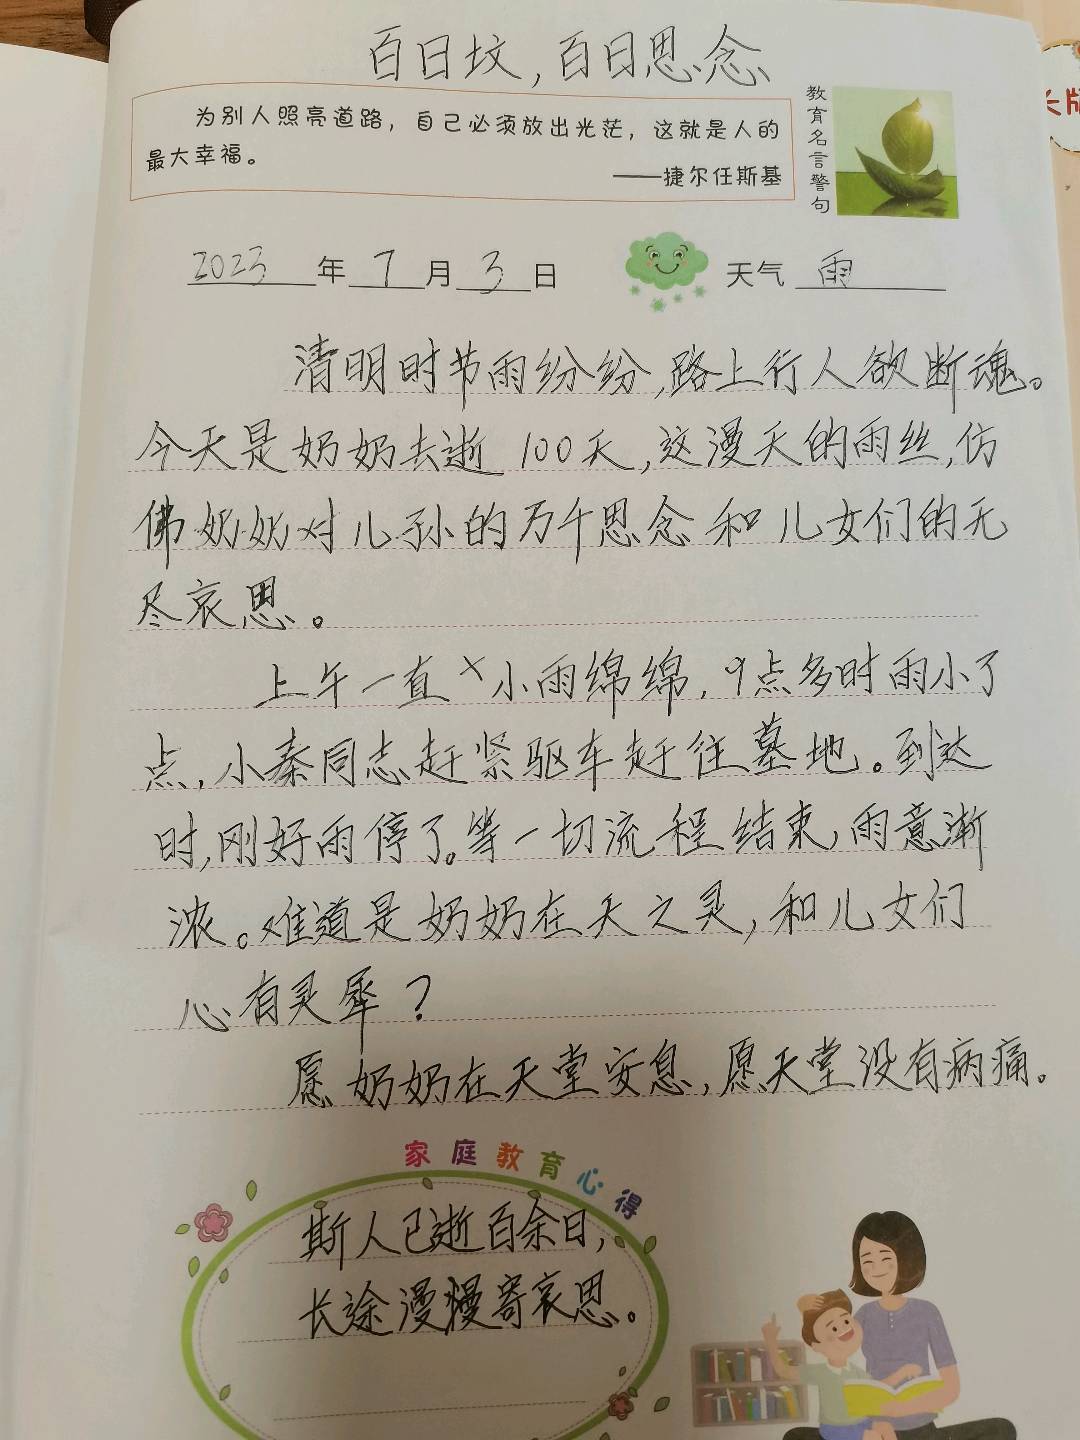 百日坟,百日思念
为别人照亮道路，自己必须放出光茫，这就是人的
最大幸福。
——捷尔任斯基
教育名言警句
2023年7月3日
天气 雨
清明时节雨纷纷,路上行人欲断魂。
今天是奶奶去逝100天,这漫天的雨丝,仿
佛奶奶对儿孙的万千思念和儿女们的无
尽哀思。
上午一直小雨绵绵,9点多时雨小了
点,小秦同志赶紧驱车赶往墓地。到达
时,刚好雨停了。等一切流程结束,雨意渐
浓。难道是奶奶在天之灵,和儿女们
心有灵犀?
愿奶奶在天堂安息,愿天堂没有病痛。
家庭教育心得
斯人已逝百余日,
长途漫漫寄哀思。